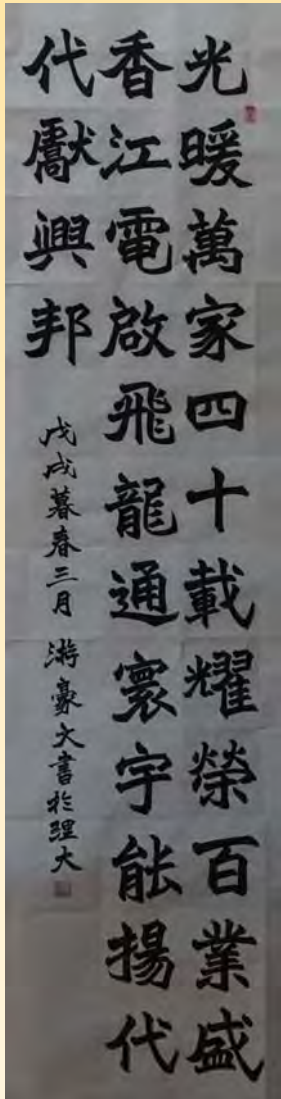 光暖萬家四十載耀榮百業盛
香江電啟飛龍通寰宇能揚代
代獻興邦
戊戌暮春三月 游豪文書於理大